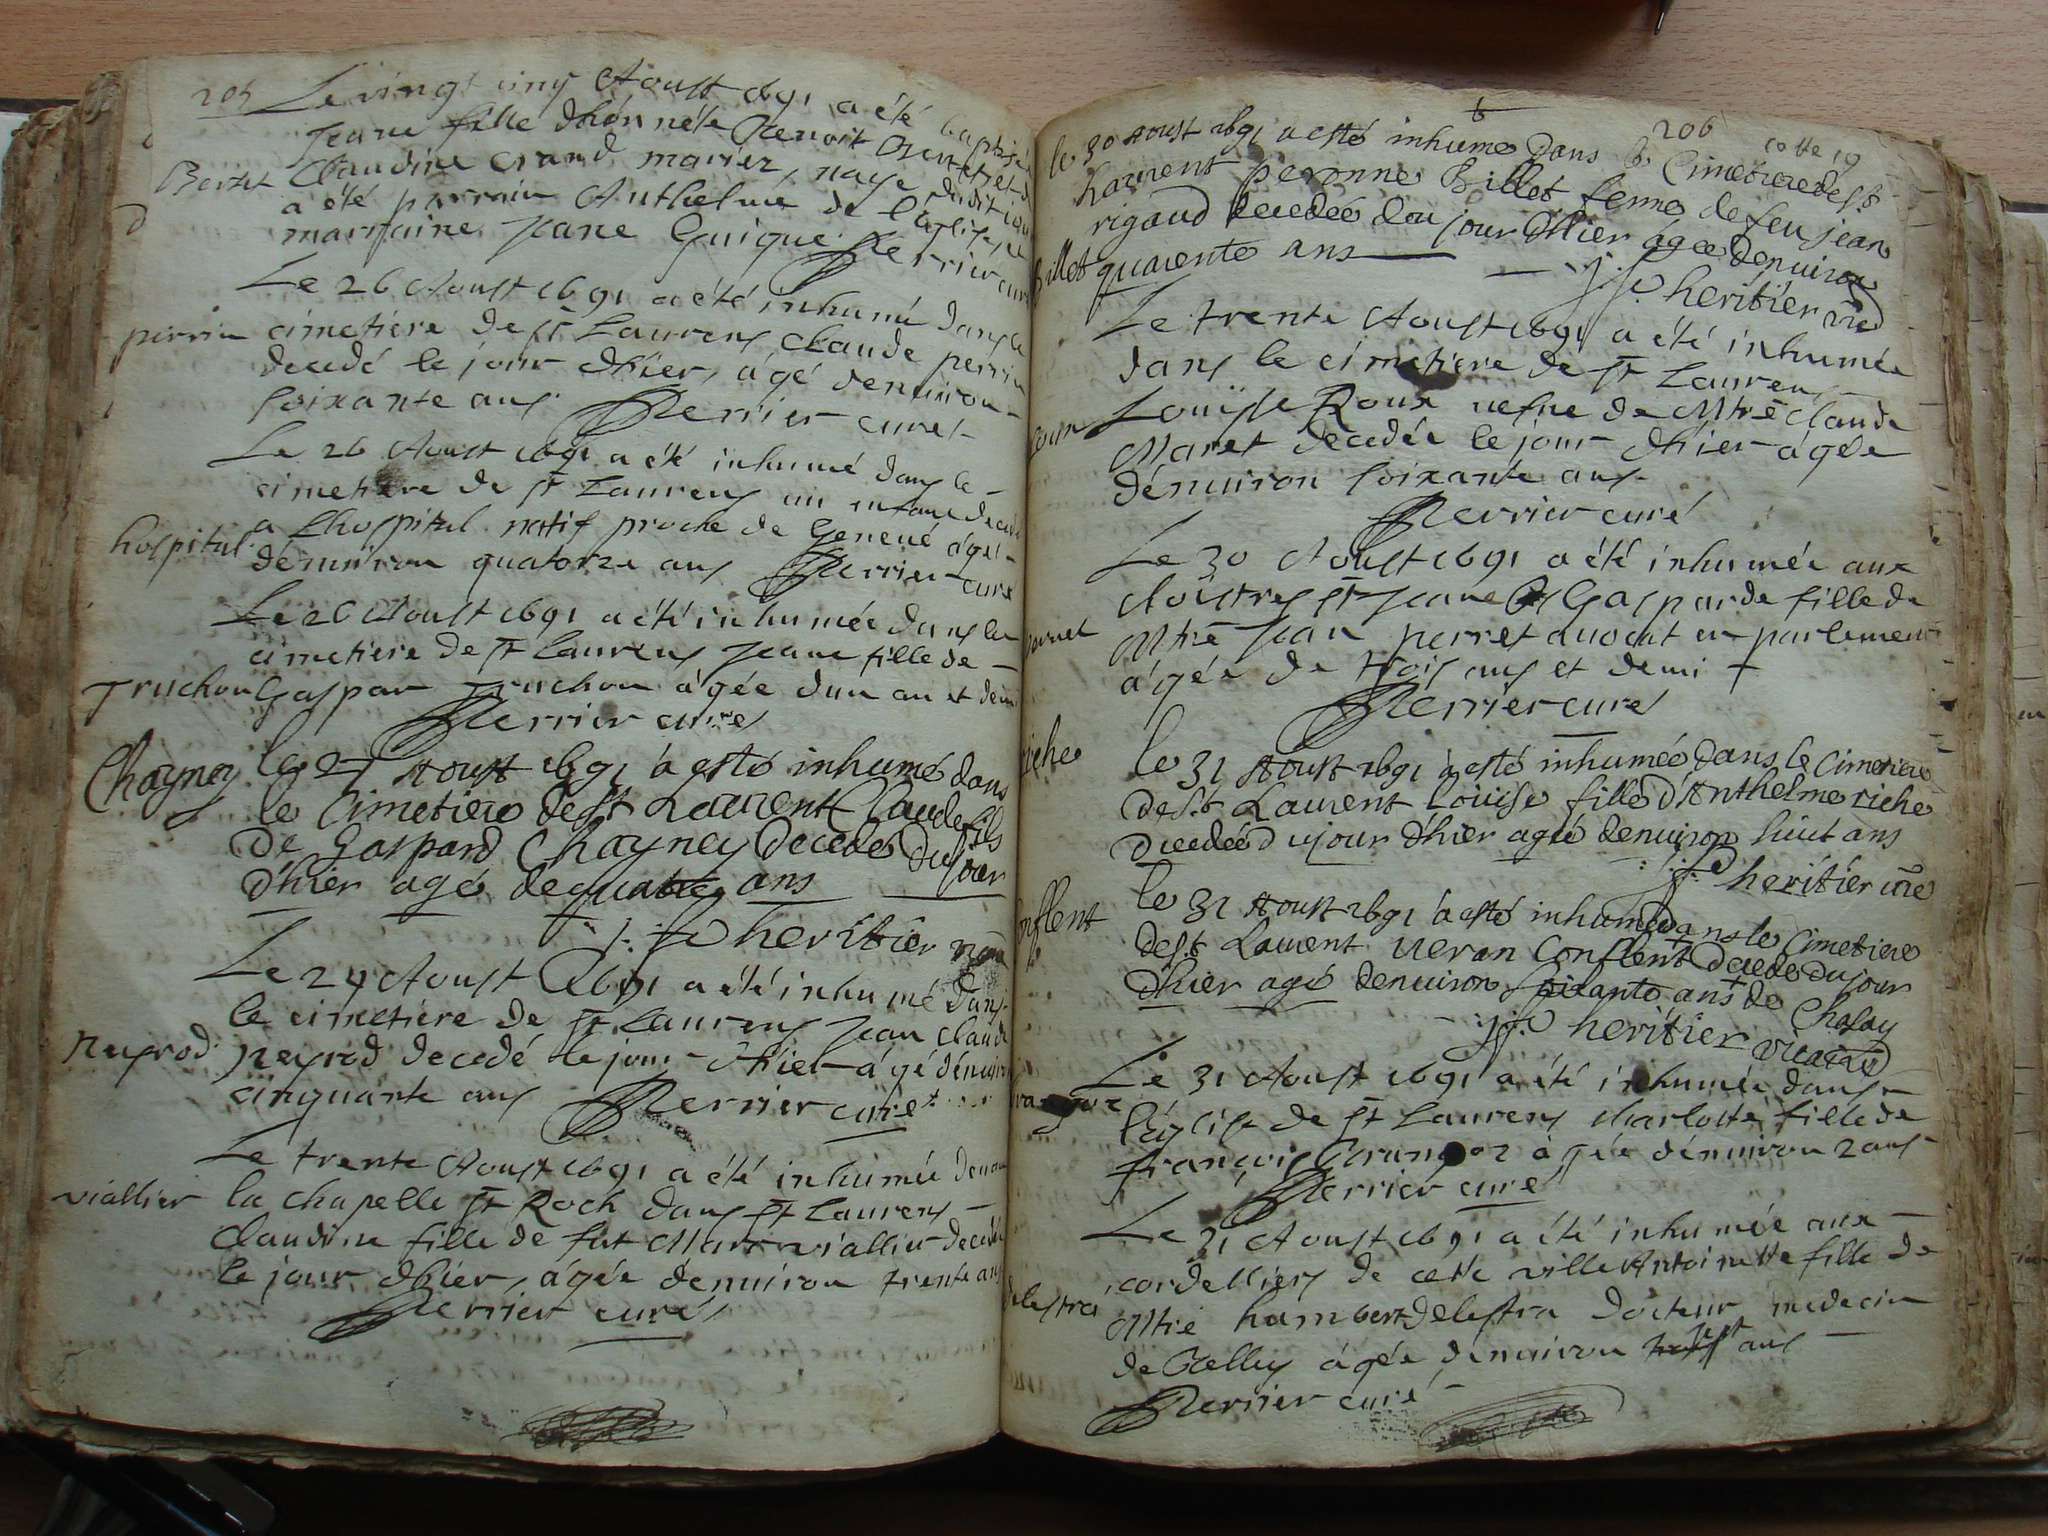 205
Le vingt cinq Aoust 1691 a été baptisée
Jeane fille d'honnéte Benoit Bertet et de
Bertet Claudine Crand mariez, naye dudit jour
a été parrain Anthelme de l'église, et
marraine Jeane Guigue Perrier curé
Le 26 Aoust 1691 a été inhumé dans le
perrin cimetiere de st Laurens Claude perrin
decedé le jour d'hier, agé denuiron
soixante ans Perrier curé
Le 26 Aoust 1691 a été inhumé dans le
cimetiere de st Laurens un infant decedé
a l'hospital natif proche de Geneue agé
hospital denuiron quatorze ans Perrier curé
Le 26 Aoust 1691 a été inhumée dans le
cimetiere de st Laurens Jeane fille de
Truchon Gaspar Truchon agée dun an et demi
Perrier curé
Chayney le 27 Aoust 1691 a esté inhumé dans
le Cimetiere de st Laurent Claude fils
de Gaspard Chayney decedé du jour
d'hier agé de quatre ans
j: f: heritier
Le 29 Aoust 1691 a été inhumé dans
le cimetiere de st Laurens Jean Claude
Neyrod Neyrod decedé le jour d'hier agé denuiron
cinquante ans Perrier curé
Le trente Aoust 1691 a été inhumée deuant
viallier la chapelle st Roch dans st Laurens
Claudine fille de fut Marc viallier decedée
le jour d'hier, agée denuiron trente ans
Perrier curé
206
cotte 19
le 30 Aoust 1691 a esté inhumé dans le Cimetiere de st
laurent peronne Billet femme de feu jean
rigaud decedée dou jour d'hier agée denuiron
Billet quarente ans
j: f: heritier vic
Le trente Aoust 1691 a été inhumée
dans le cimetiere de st Laurens
Louisse Roux uefue de Mtre Claude
Maret decedée le jour d'hier agée
denuiron soixante ans
Perrier curé
Le 30 Aoust 1691 a été inhumée aux
cloistres st Jeane Gasparde fille de
perret Mtre Jean perret auocat en parlement
agée de trois ans et demi
Perrier curé
riche le 31 Aoust 1691 a esté inhumée dans le Cimetiere
de st Laurent Loüise fille d'Anthelme riche
decedée du jour d'hier agée denuiron huict ans
j: f: heritier vic
Conflent le 31 Aoust 1691 a esté inhumé dans le Cimetiere
de st Laurent ueran Conflent decedé du jour
d'hier agé denuiron soixante ans de Chalay
j: f: heritier vicaire
Le 31 Aoust 1691 a été inhumée dans
l'église de st Laurens Charlotte fille de
françois agée denuiron 2 ans
Perrier curé
Le 31 Aoust 1691 a été inhumée aux
cordelliers de cette ville Antoinette fille de
delestra Mtre hambert delestra docteur medecin
de Belley agée denuiron sept ans
Perrier curé